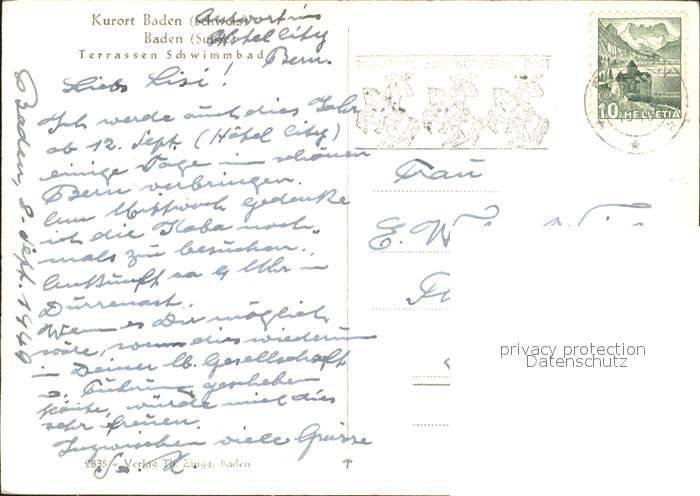 Kurort Baden (Schweiz)
Baden (Suisse)
Terrassen Schwimmbad
Antwort ins
Hotel City
Bern.
Baden, 8. Sept. 1949
Liebe Lisi!
Ich werde auch dies Jahr
ab 12. Sept. (Hôtel City)
einige Tage im schönen
Bern verbringen.
Am Mittwoch gedenke
ich die Kaba noch-
mals zu besuchen.
Ankunft ca 9 Uhr in
Dürrenast.
Wenn es Dir möglich
wäre, wenn dies wiederum
in Deiner lb. Gesellschaft
u. Führung geschehen
könnte, würde mich dies
sehr freuen.
Inzwischen viele Grüsse
2835 - Verlag Th. Zingg, Baden
100 JAHRE EIDGENÖSSISCHE POST
10 HELVETIA
Frau
E. W
privacy protection
Datenschutz